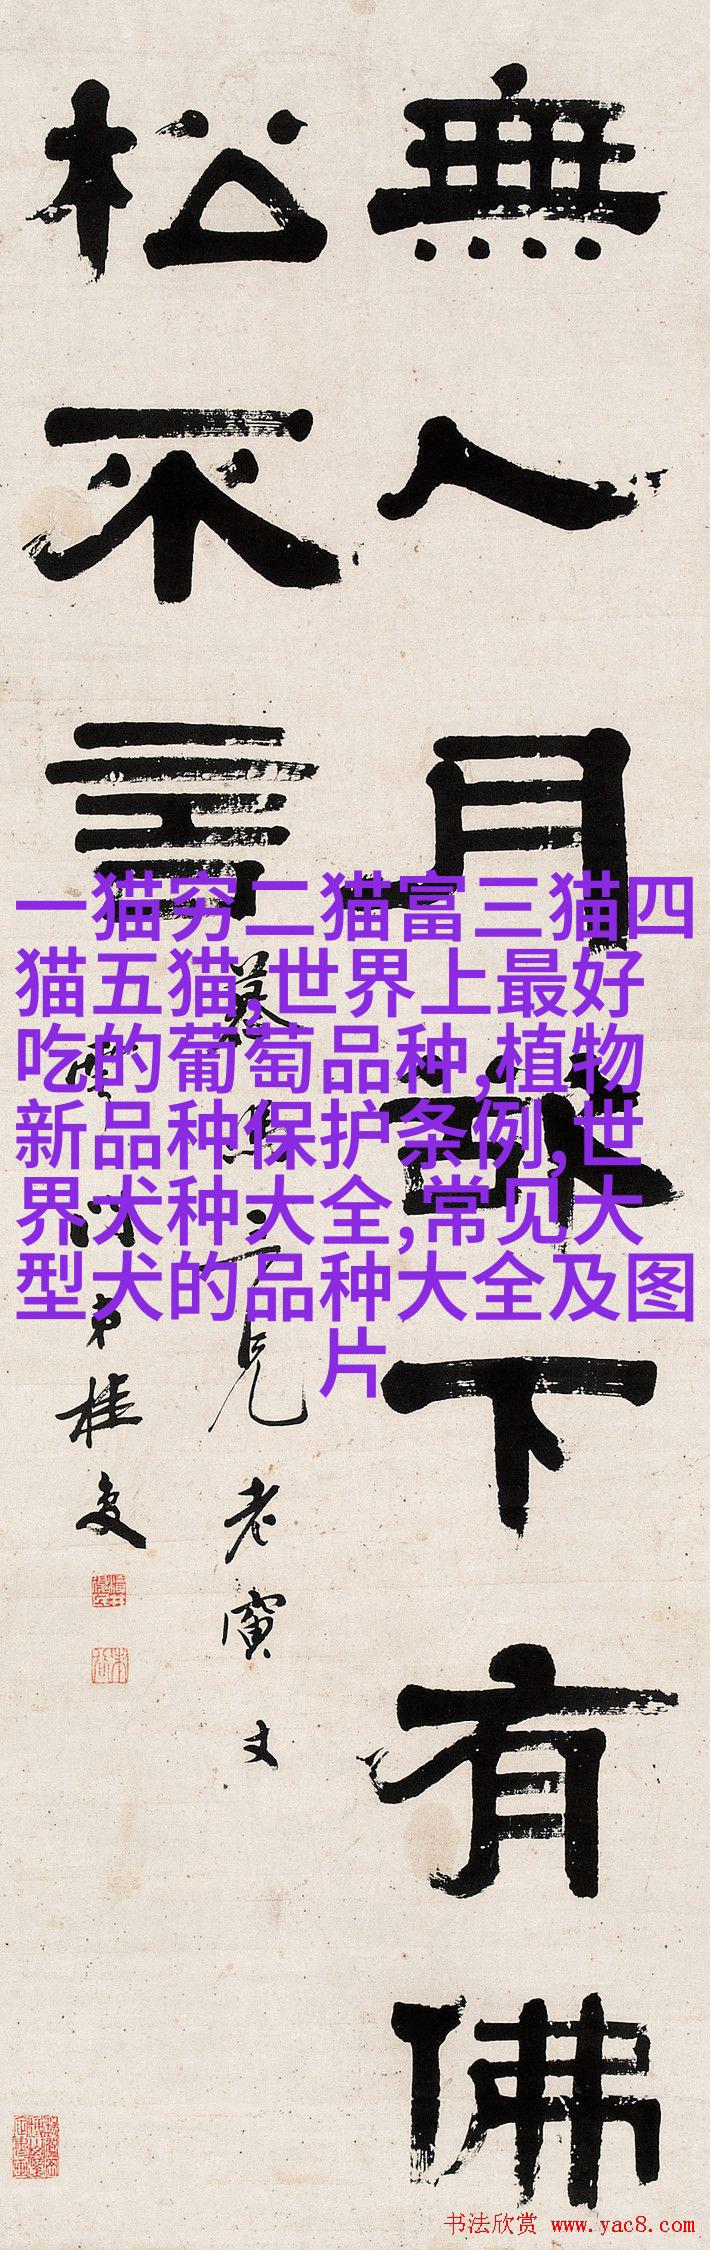 無人月下有佛
松不言
兄老
弟桂
一猫穷二猫富三猫四
猫五猫,世界上最好
吃的葡萄品种,植物
新品种保护条例,世
界犬种大全,常见大
型犬的品种大全及图
片
书法欣赏 www.yac8.com